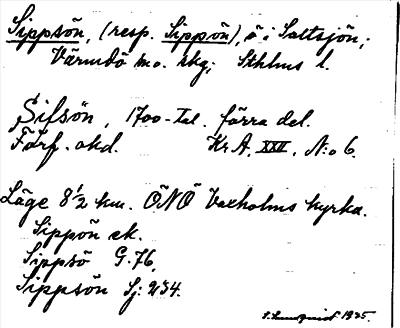 Sippsön, (resp. Sippön), ö i Saltsjön;
Värmdö m.o. skg; Sthlms l.
Sifsön, 1700-tal. förra del.
Förf. okd. Kr.A. XXII, N:o 6.
Läge 8 1/2 km. ÖNÖ Vaxholms kyrka.
Sippön ek.
Sippsö G. 76.
Sippsön Sj: 234.
S. Lundqvist 1925.